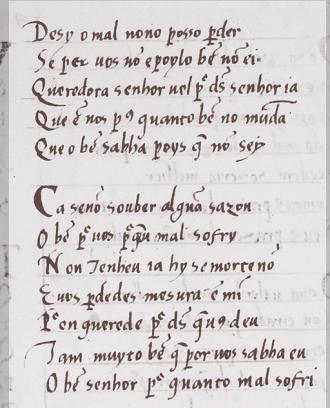 Desy o mal nono posso p̃der
Se per uos nõ e poylo bẽ nõ ei
Queredora senhor uel p̃ dš senhor ia
Que ẽ uos p9 quanto bẽ no mũda
Que o bẽ sabha poys q̃ nõ sey
Ca senõ souber algũa sazon
O bẽ p̃ uos p̃ q̃u mal sofry
Non Tenheu ia hy se morte nõ
E uos p̃dedes mesura ẽ mĩ
P̃en querede p̃ dš q̃ u9 deu
Tam muyto bẽ q̃ por uos sabha eu
O bẽ senhor p̃ quanto mal sofri